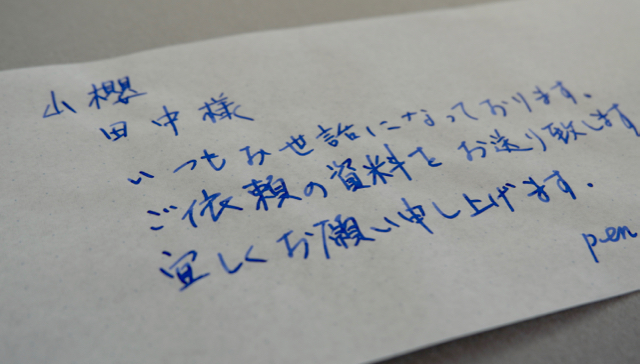 山櫻
田中様
いつもお世話になっております.
ご依頼の資料をお送り致します
宜しくお願い申し上げます.
pen